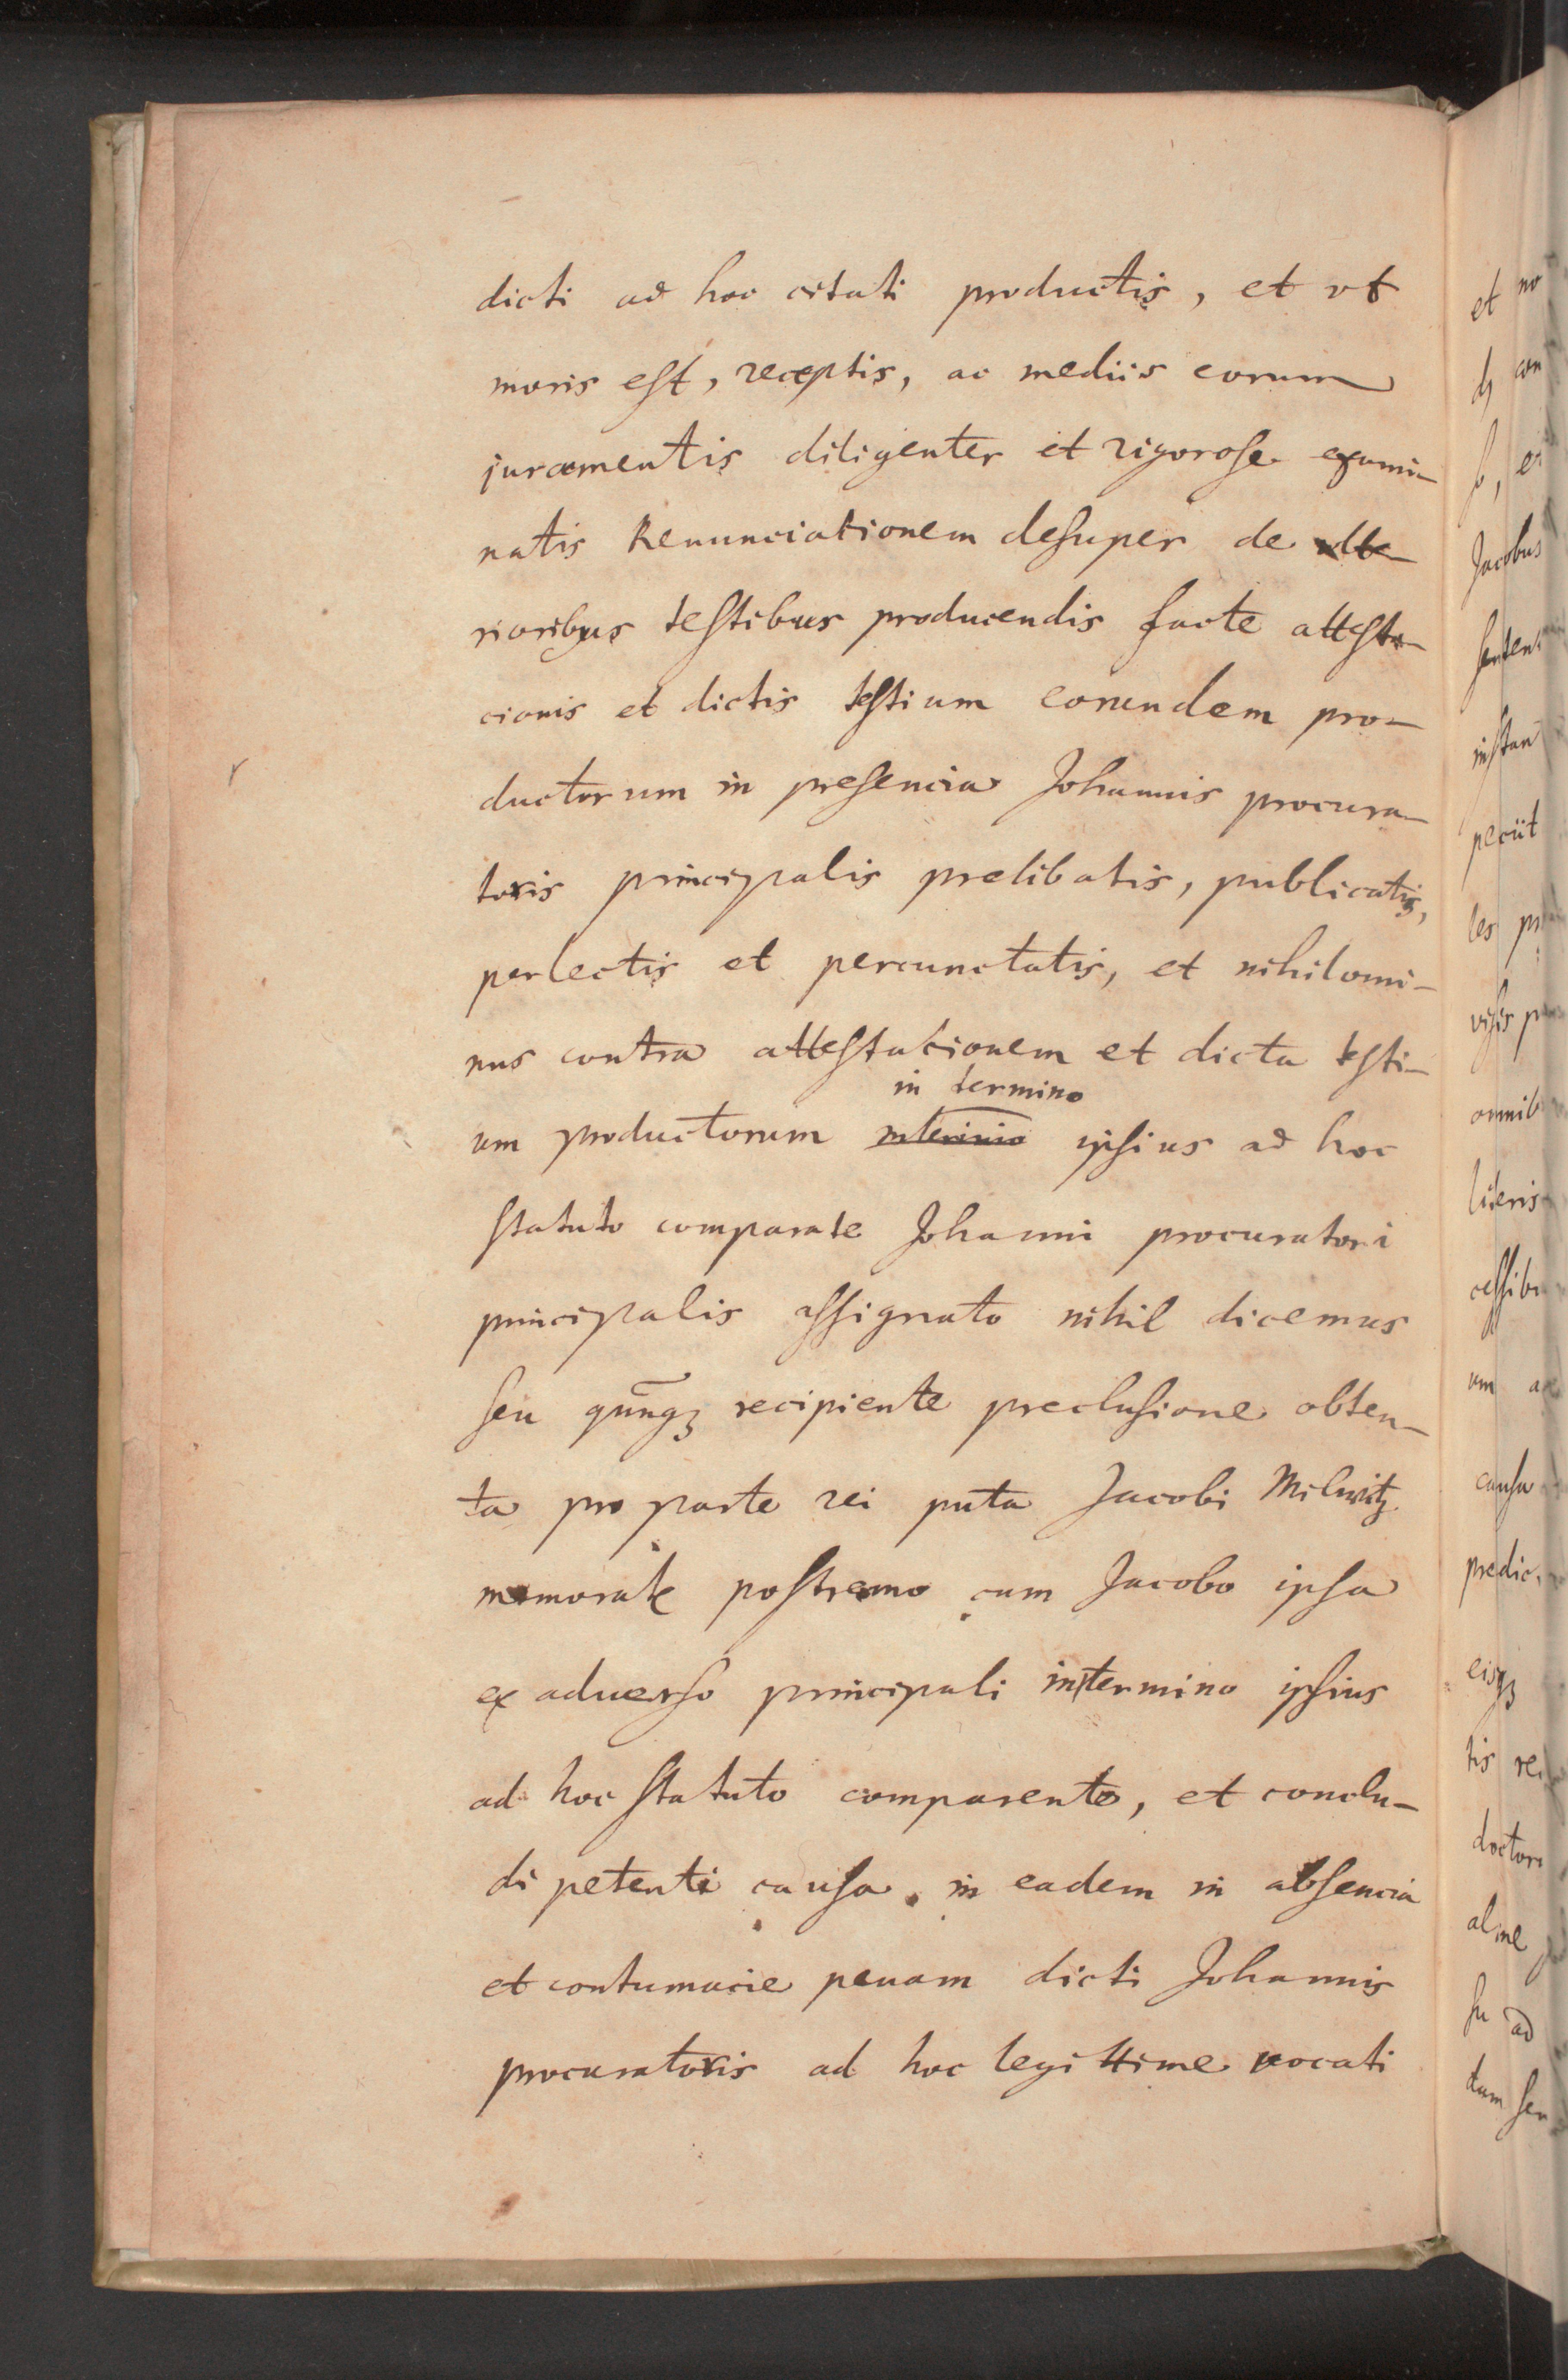 dicti ad hoc citati productis, et vt
moris est, receptis, ac mediis eorum
juramentis diligenter et rigorose exami-
natis Renunciationem desuper de vlte-
rioribus testibus producendis facte attesta-
cionis et dictis testium eorundem pro-
ductorum in presencia Johannis procura-
toris principalis prelibatis, publicatis,
perlectis et percunctatis, et nihilomi-
nus contra attestacionem et dicta testi-
in termino
um productorum ipsius ad hoc
statuto comparate Johanni procuratori
principalis assignato nihil dicemus
seu recipiente preclusione obten-
ta pro parte rei puta Jacobi Milwitz
memorate postremo cum Jacobo ipsa
ex aduerso principali in termino ipsius
ad hoc statuto comparente, et conclu-
di petenti causa in eadem in absencia
et contumacie penam dicti Johannis
procuratoris ad hoc legittime vocati